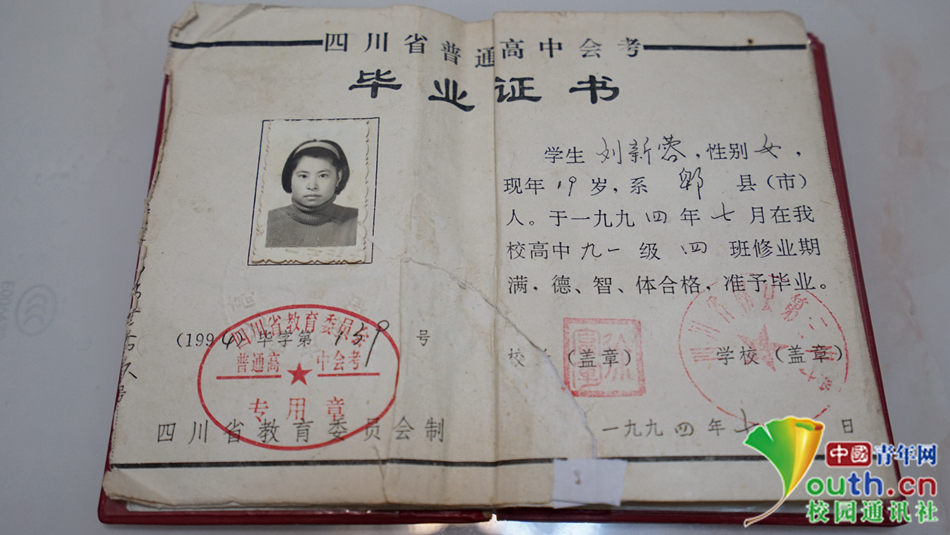 四川省普通高中会考
毕业证书
学生 刘新蓉，性别 女，
现年 19 岁，系 郫 县（市）
人。于一九九四年 七 月在我
校高中 九一 级 四 班修业期
满，德、智、体合格，准予毕业。
(1994 毕字第 159 号
校 （盖章）
学校（盖章）
四川省教育委员会
普通高 中会考
专用章
四川省教育委员会制
一九九四年 七 日
中國青年网
youth.cn
校园通讯社